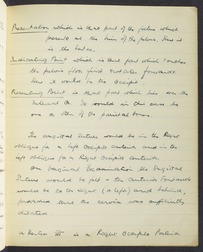 Presentation which is that part of the fetus which
presents at the brim of the pelvis. Here it
is the vertex.
Indicating Point which is that part which reaches
the pelvic floor first & rotates forwards.
Here it would be the occiput.
Presenting Point is that part which lies over the
internal Os. It would in this case be
one or other of the parietal bones.
The sagittal suture would be in the Right
oblique for a left occipito anterior and in the
left oblique for a Right Occipito anterior.
On vaginal Examination the sagittal
suture would be felt & the anterior fontanelle
would be to the Right (or left) and behind,
provided that the cervix was sufficiently
dilated.
a Vertex III is a Right Occipito Posterior